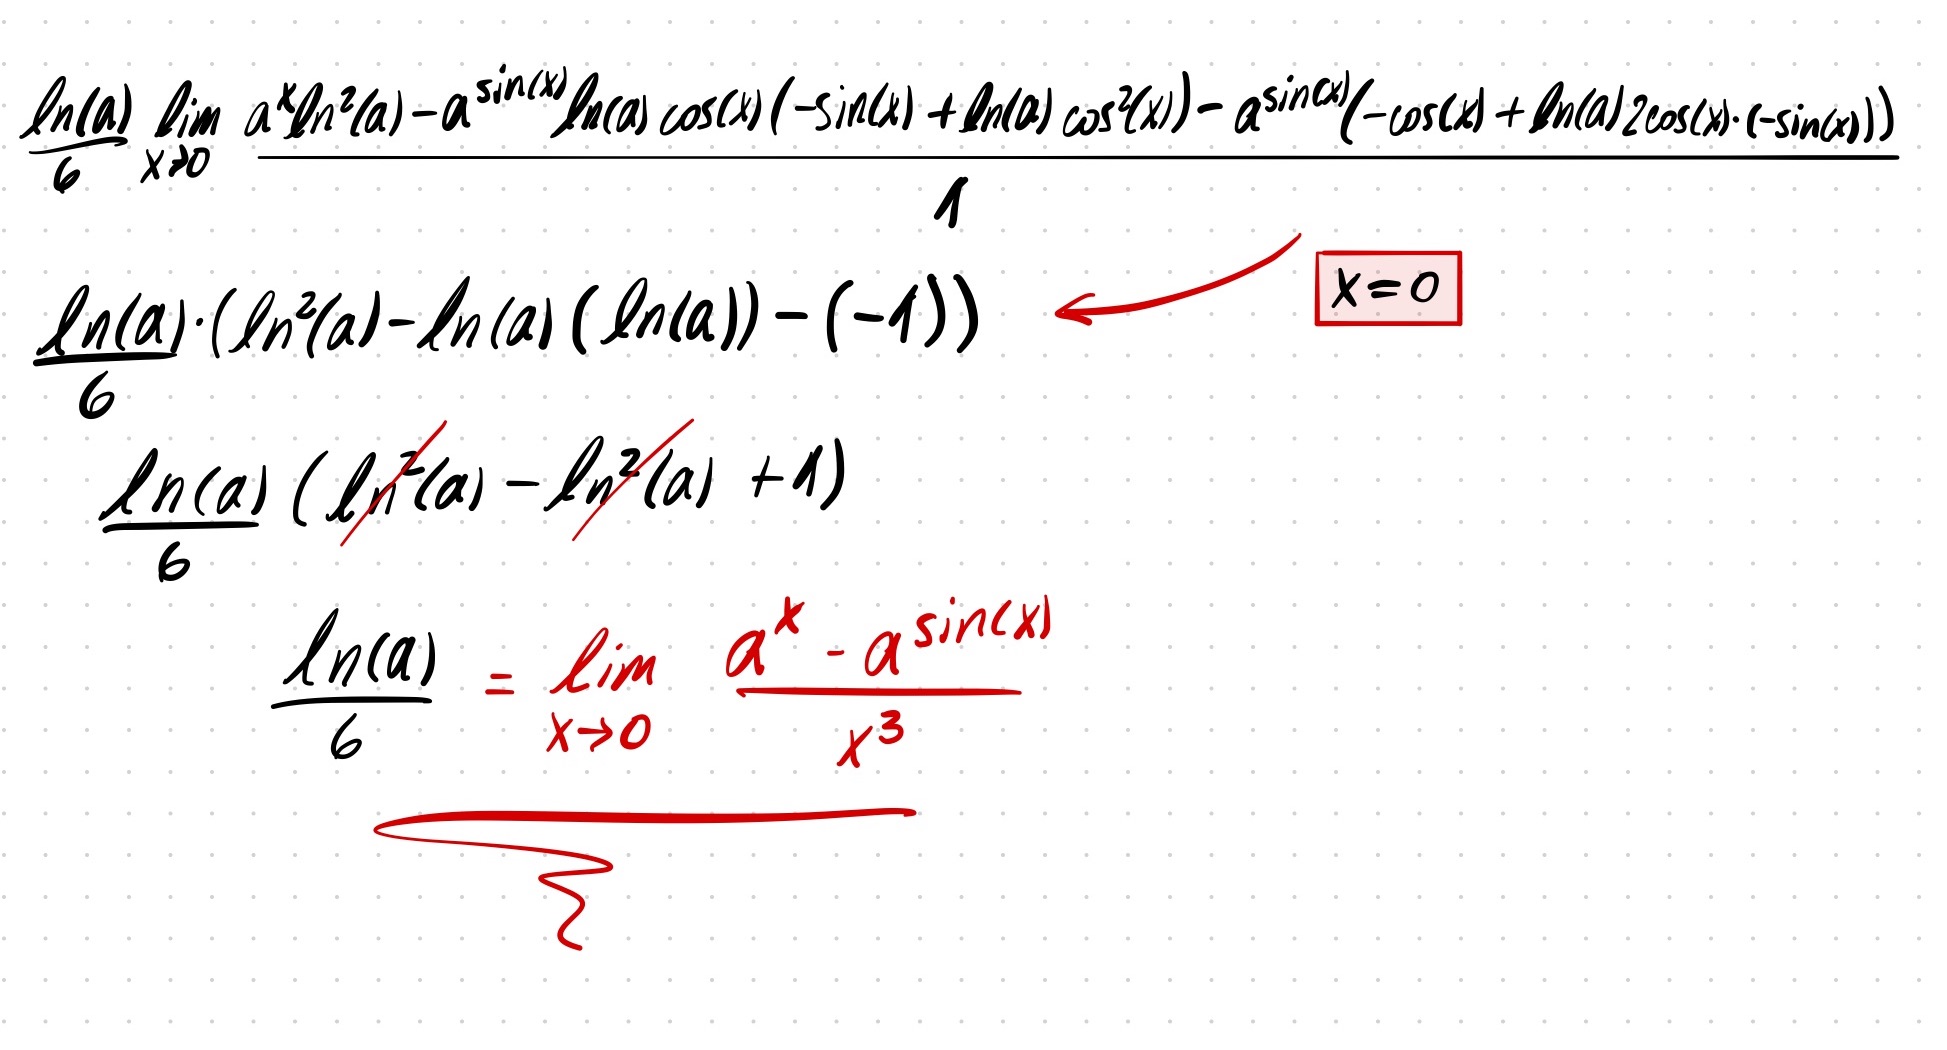 ln(a)/6 lim x→0 (a^x ln²(a) - a^sin(x) ln(a) cos(x) (-sin(x) + ln(a) cos²(x)) - a^sin(x) (-cos(x) + ln(a) 2cos(x)·(-sin(x))))/1
x=0
ln(a)/6 · (ln²(a) - ln(a) (ln(a)) - (-1))
ln(a)/6 (ln²(a) - ln²(a) + 1)
ln(a)/6 = lim x→0 (a^x - a^sin(x))/x³